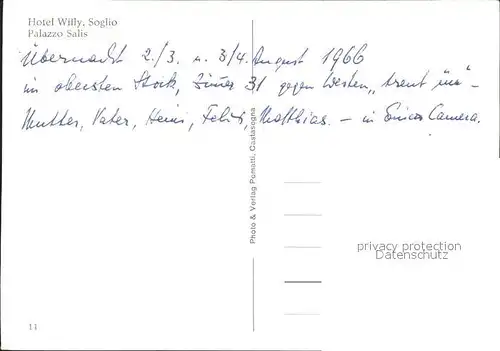 Hotel Willy, Soglio
Palazzo Salis
Übernacht 2./3. u. 3/4. August 1966
im obersten Stock, Zimer 31 gegen Westen, „trent üna"-
Mutter, Vater, Heini, Felix, Matthias. – in Camera.
Photo & Verlag Pomatti, Castasegna
privacy protection
Datenschutz
11